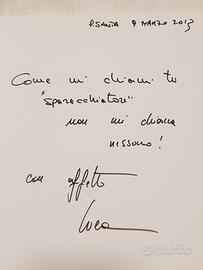 P. SANTA 9 MARZO 2013
Come mi chiami tu
"sparacchiatori"
non mi chiama
nissuno!
con affetto
Luca
subito